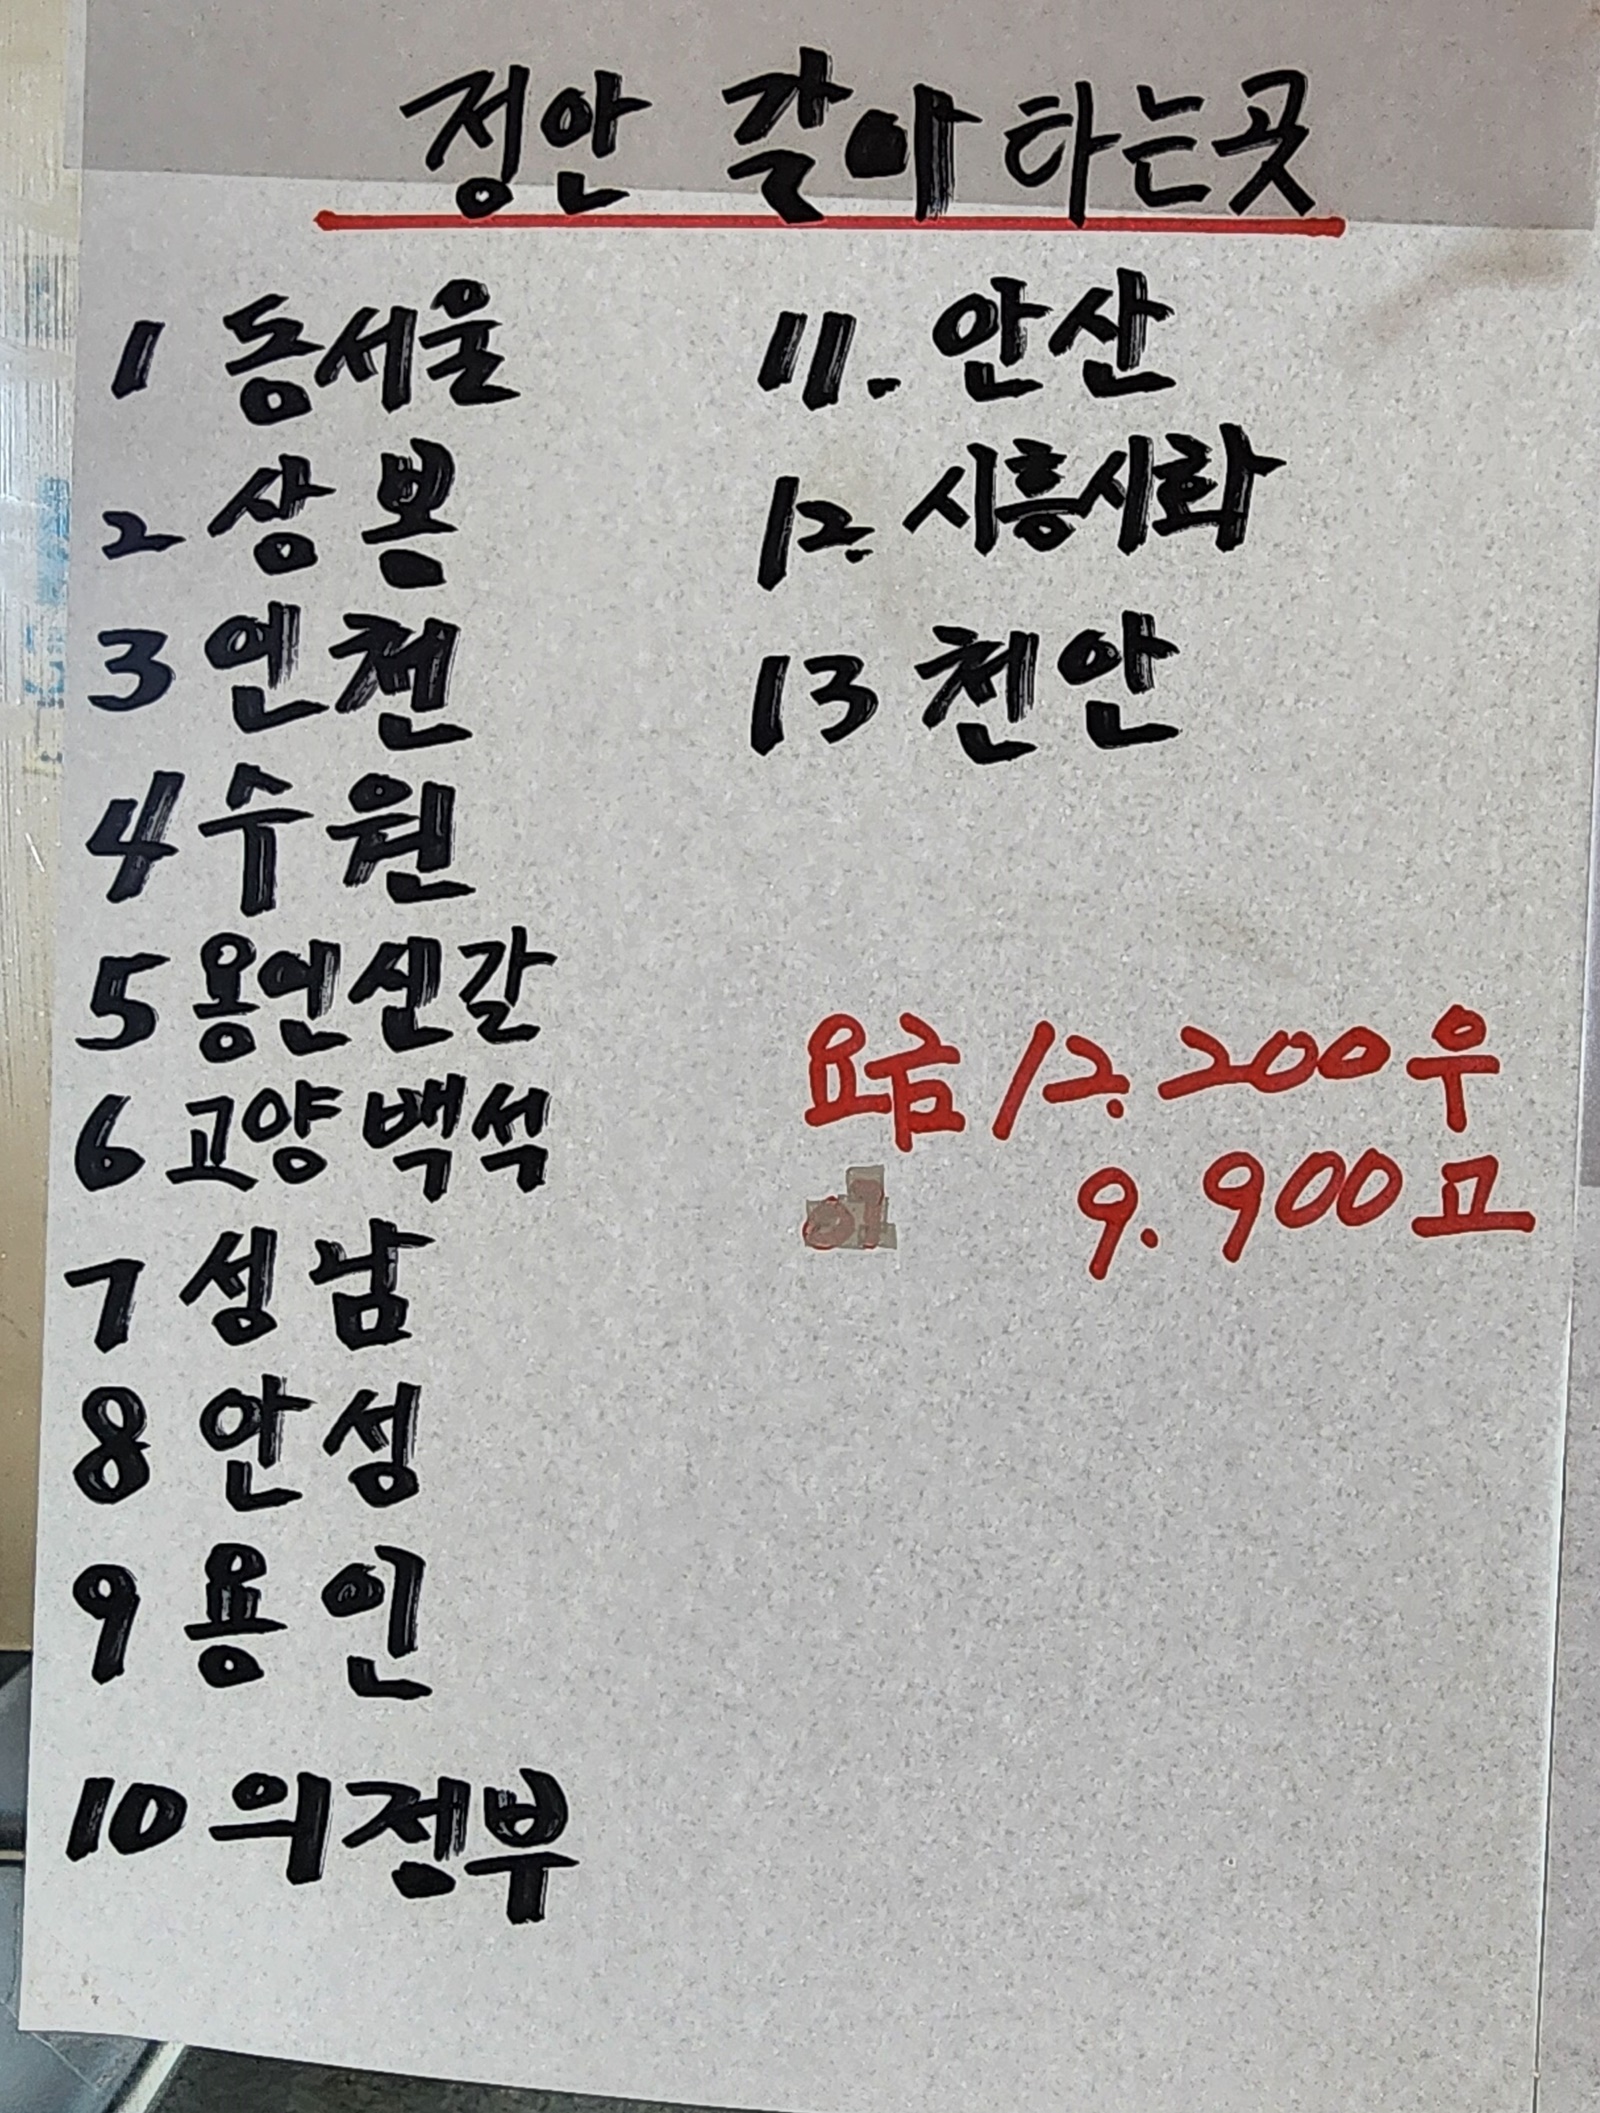 정안 갈아타는곳
1 동서울
2 상봉
3 인천
4 수원
5 용인신갈
6 고양백석
7 성남
8 안성
9 용인
10 의정부
11. 안산
12. 시흥시화
13 천안
요금 12.200우
9.900고